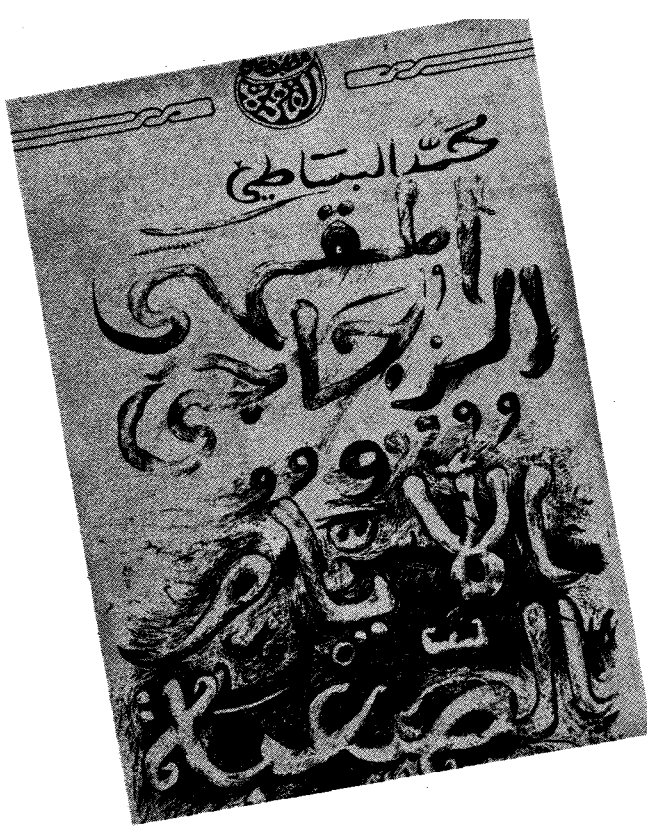 محمّد البساطي
المقهى
الزجاجي
و
الأيام
الصعبة